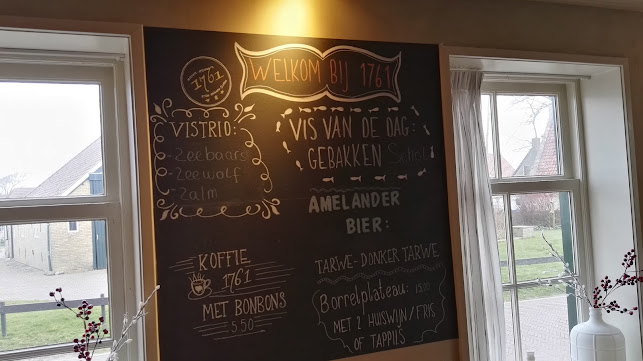 1761
WELKOM BIJ 1761
VISTRIO:
- Zeebaars
- Zeewolf
- Zalm
VIS VAN DE DAG:
GEBAKKEN Schol
AMELANDER
BIER:
TARWE-DONKER TARWE
KOFFIE
1761
MET BONBONS
5.50
Borrelplateau:
MET 2 HUISWIJN/FRIS
OF TAPPILS